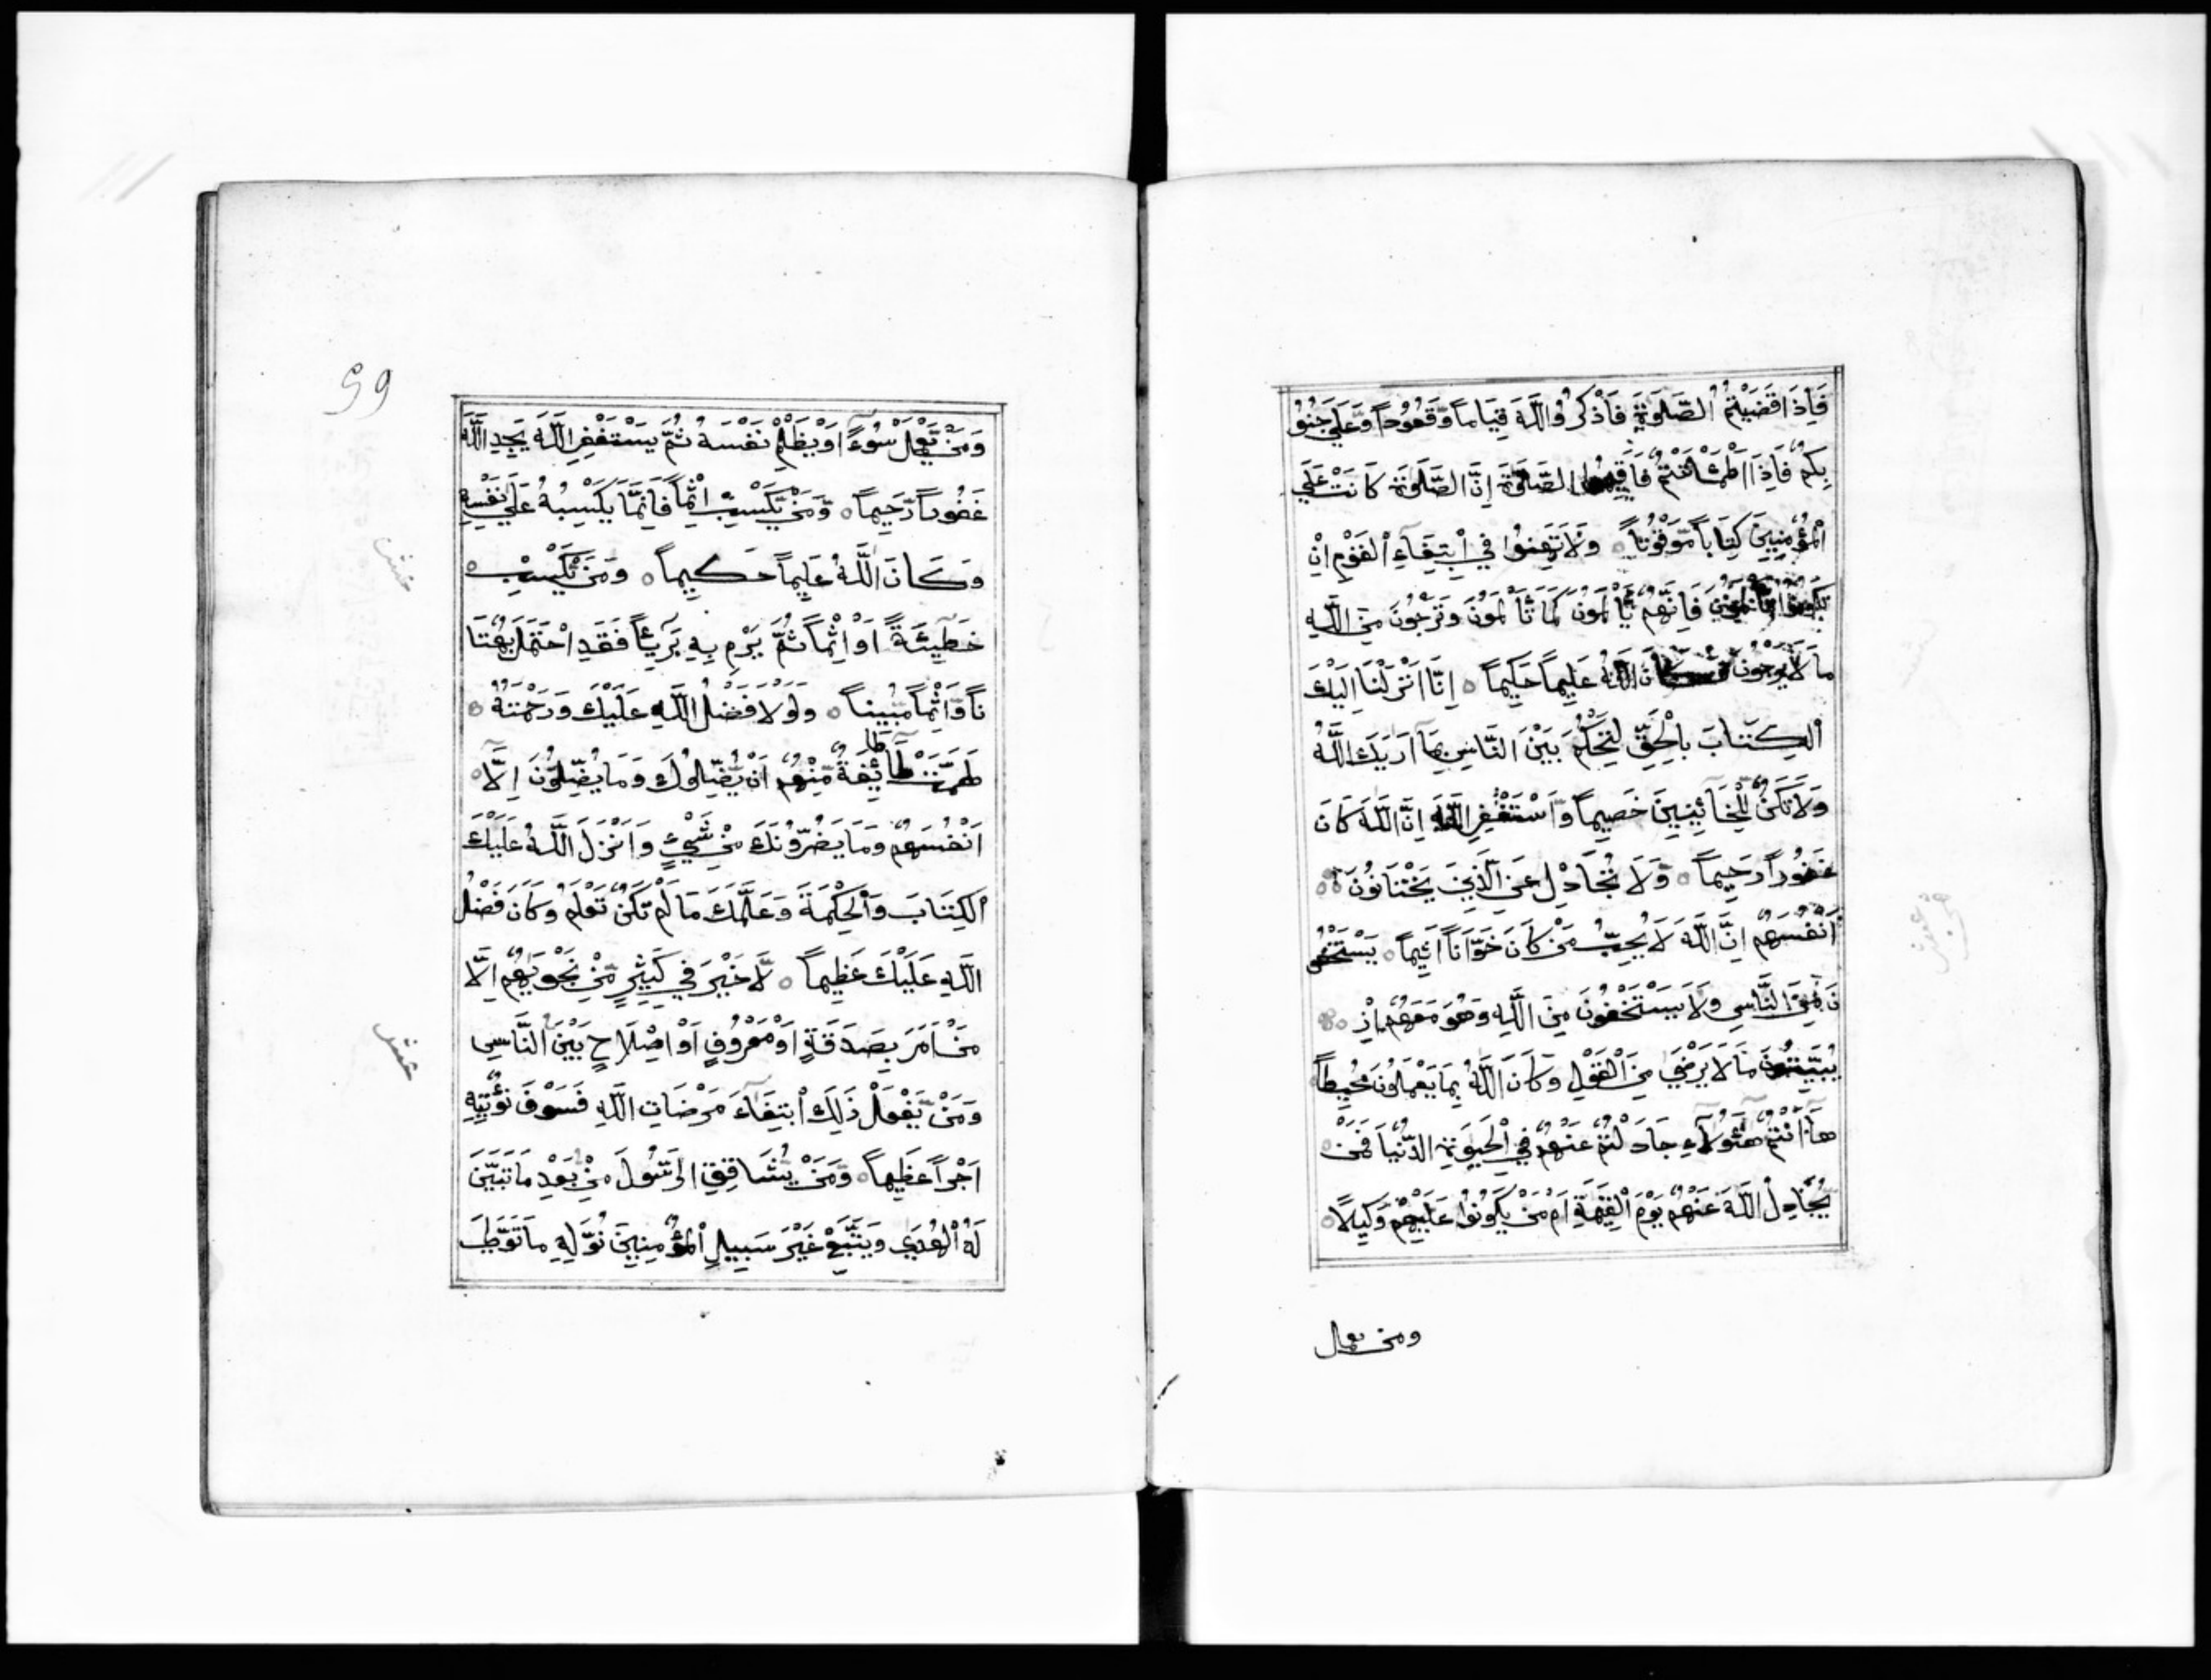 فَاِذَا قَضَيْتُمُ الصَّلٰوةَ فَاذْكُرُوا اللّٰهَ قِيَامًا وَّقُعُوْدًا وَّعَلٰى جُنُوْ
بِكُمْ فَاِذَا اطْمَأْنَنْتُمْ فَاَقِيْمُوا الصَّلٰوةَ اِنَّ الصَّلٰوةَ كَانَتْ عَلَى
الْمُؤْمِنِيْنَ كِتَابًا مَّوْقُوْتًا ○ وَلَا تَهِنُوْا فِي ابْتِغَاءِ الْقَوْمِ اِنْ
تَكُوْنُوْا تَأْلَمُوْنَ فَاِنَّهُمْ يَأْلَمُوْنَ كَمَا تَأْلَمُوْنَ وَتَرْجُوْنَ مِنَ اللّٰهِ
مَا لَا يَرْجُوْنَ وَكَانَ اللّٰهُ عَلِيْمًا حَكِيْمًا ○ اِنَّا اَنْزَلْنَا اِلَيْكَ
الْكِتَابَ بِالْحَقِّ لِتَحْكُمَ بَيْنَ النَّاسِ بِمَا اَرٰيكَ اللّٰهُ
وَلَا تَكُنْ لِّلْخَائِنِيْنَ خَصِيْمًا وَّاسْتَغْفِرِ اللّٰهَ اِنَّ اللّٰهَ كَانَ
غَفُوْرًا رَّحِيْمًا ○ وَّلَا تُجَادِلْ عَنِ الَّذِيْنَ يَخْتَانُوْنَ ○
اَنْفُسَهُمْ اِنَّ اللّٰهَ لَا يُحِبُّ مَنْ كَانَ خَوَّانًا اَثِيْمًا ○ يَسْتَخْفُو
نَ مِنَ النَّاسِ وَلَا يَسْتَخْفُوْنَ مِنَ اللّٰهِ وَهُوَ مَعَهُمْ اِذْ ○
يُبَيِّتُوْنَ مَا لَا يَرْضٰى مِنَ الْقَوْلِ وَكَانَ اللّٰهُ بِمَا يَعْمَلُوْنَ مُحِيْطًا
هَا اَنْتُمْ هٰؤُلَاءِ جَادَلْتُمْ عَنْهُمْ فِي الْحَيٰوةِ الدُّنْيَا فَمَنْ ○
يُّجَادِلُ اللّٰهَ عَنْهُمْ يَوْمَ الْقِيٰمَةِ اَمْ مَّنْ يَّكُوْنُ عَلَيْهِمْ وَكِيْلًا ○
ومن يعمل
99
وَمَنْ يَّعْمَلْ سُوْءًا اَوْ يَظْلِمْ نَفْسَهُ ثُمَّ يَسْتَغْفِرِ اللّٰهَ يَجِدِ اللّٰهَ
غَفُوْرًا رَّحِيْمًا ○ وَّمَنْ يَّكْسِبْ اِثْمًا فَاِنَّمَا يَكْسِبُهُ عَلٰى نَفْسِهِ
وَكَانَ اللّٰهُ عَلِيْمًا حَكِيْمًا ○ وَمَنْ يَّكْسِبْ ○
خَطِيْئَةً اَوْ اِثْمًا ثُمَّ يَرْمِ بِهِ بَرِيْئًا فَقَدِ احْتَمَلَ بُهْتَا
نًا وَّاِثْمًا مُّبِيْنًا ○ وَلَوْلَا فَضْلُ اللّٰهِ عَلَيْكَ وَرَحْمَتُهُ ○
طَا
لَهَمَّتْ طَائِفَةٌ مِّنْهُمْ اَنْ يُّضِلُّوْكَ وَمَا يُضِلُّوْنَ اِلَّا ○
اَنْفُسَهُمْ وَمَا يَضُرُّوْنَكَ مِنْ شَيْءٍ وَاَنْزَلَ اللّٰهُ عَلَيْكَ
الْكِتَابَ وَالْحِكْمَةَ وَعَلَّمَكَ مَا لَمْ تَكُنْ تَعْلَمُ وَكَانَ فَضْلُ
اللّٰهِ عَلَيْكَ عَظِيْمًا ○ لَا خَيْرَ فِي كَثِيْرٍ مِّنْ نَّجْوٰيهُمْ اِلَّا
مَنْ اَمَرَ بِصَدَقَةٍ اَوْ مَعْرُوْفٍ اَوْ اِصْلَاحٍ بَيْنَ النَّاسِ
وَمَنْ يَّفْعَلْ ذٰلِكَ ابْتِغَاءَ مَرْضَاتِ اللّٰهِ فَسَوْفَ نُؤْتِيْهِ
اَجْرًا عَظِيْمًا ○ وَّمَنْ يُّشَاقِقِ الرَّسُوْلَ مِنْ بَعْدِ مَا تَبَيَّنَ
لَهُ الْهُدٰى وَيَتَّبِعْ غَيْرَ سَبِيْلِ الْمُؤْمِنِيْنَ نُوَلِّهِ مَا تَوَلّٰى